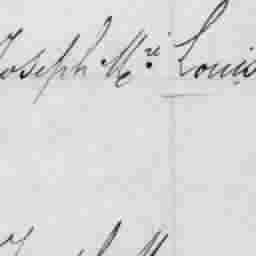 Joseph Mre Louis